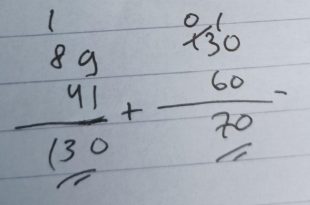 1 0 1
89 130
41 + 60 -
130 70